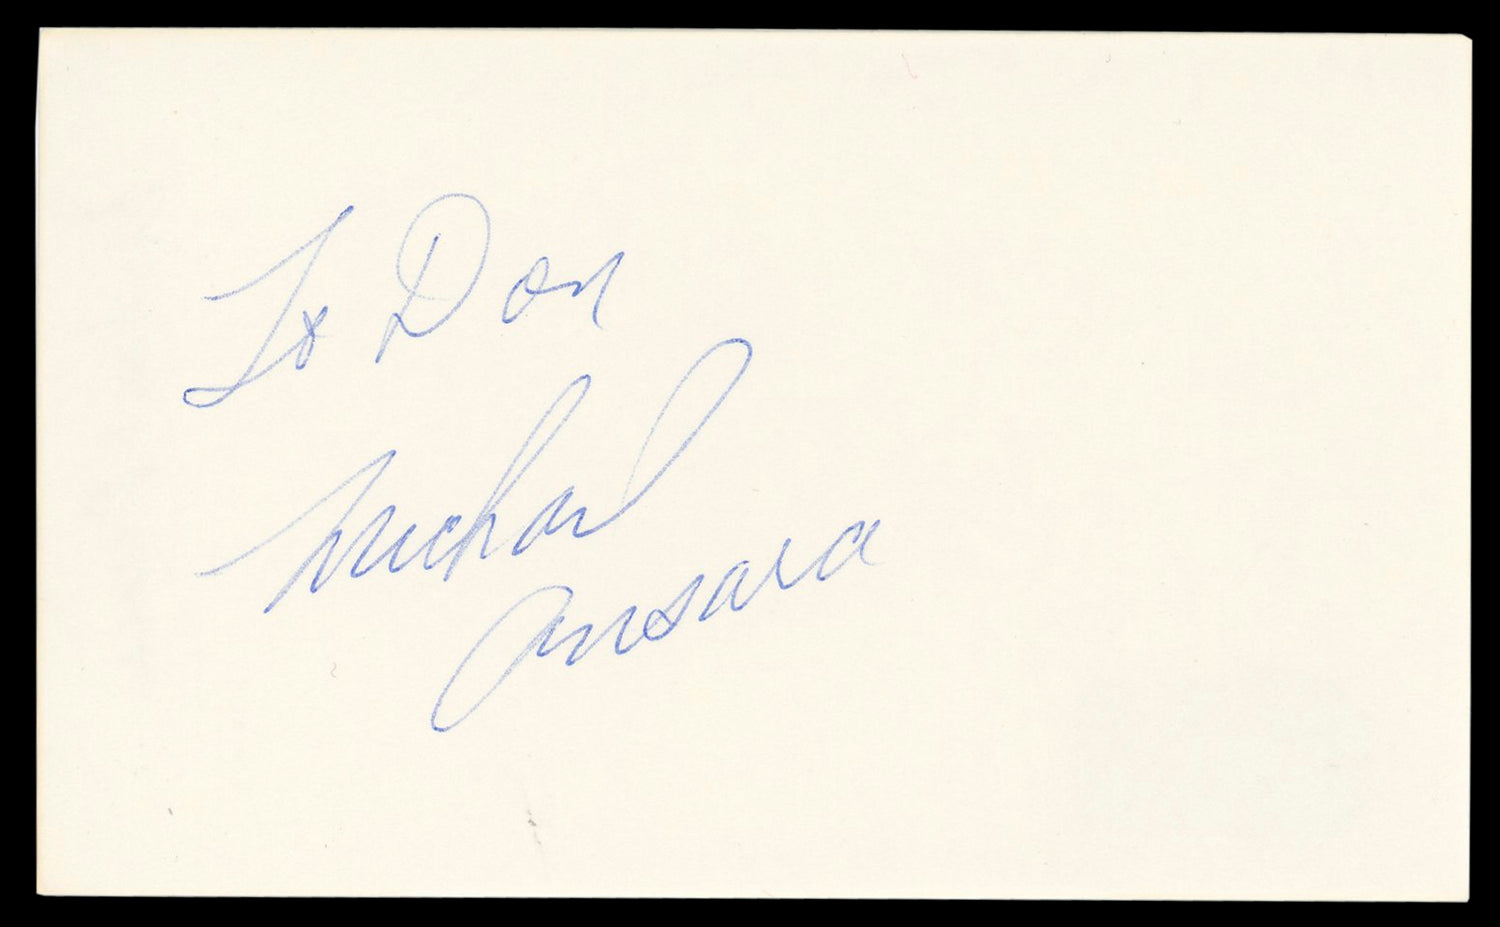 To Don
Michael
Ansara